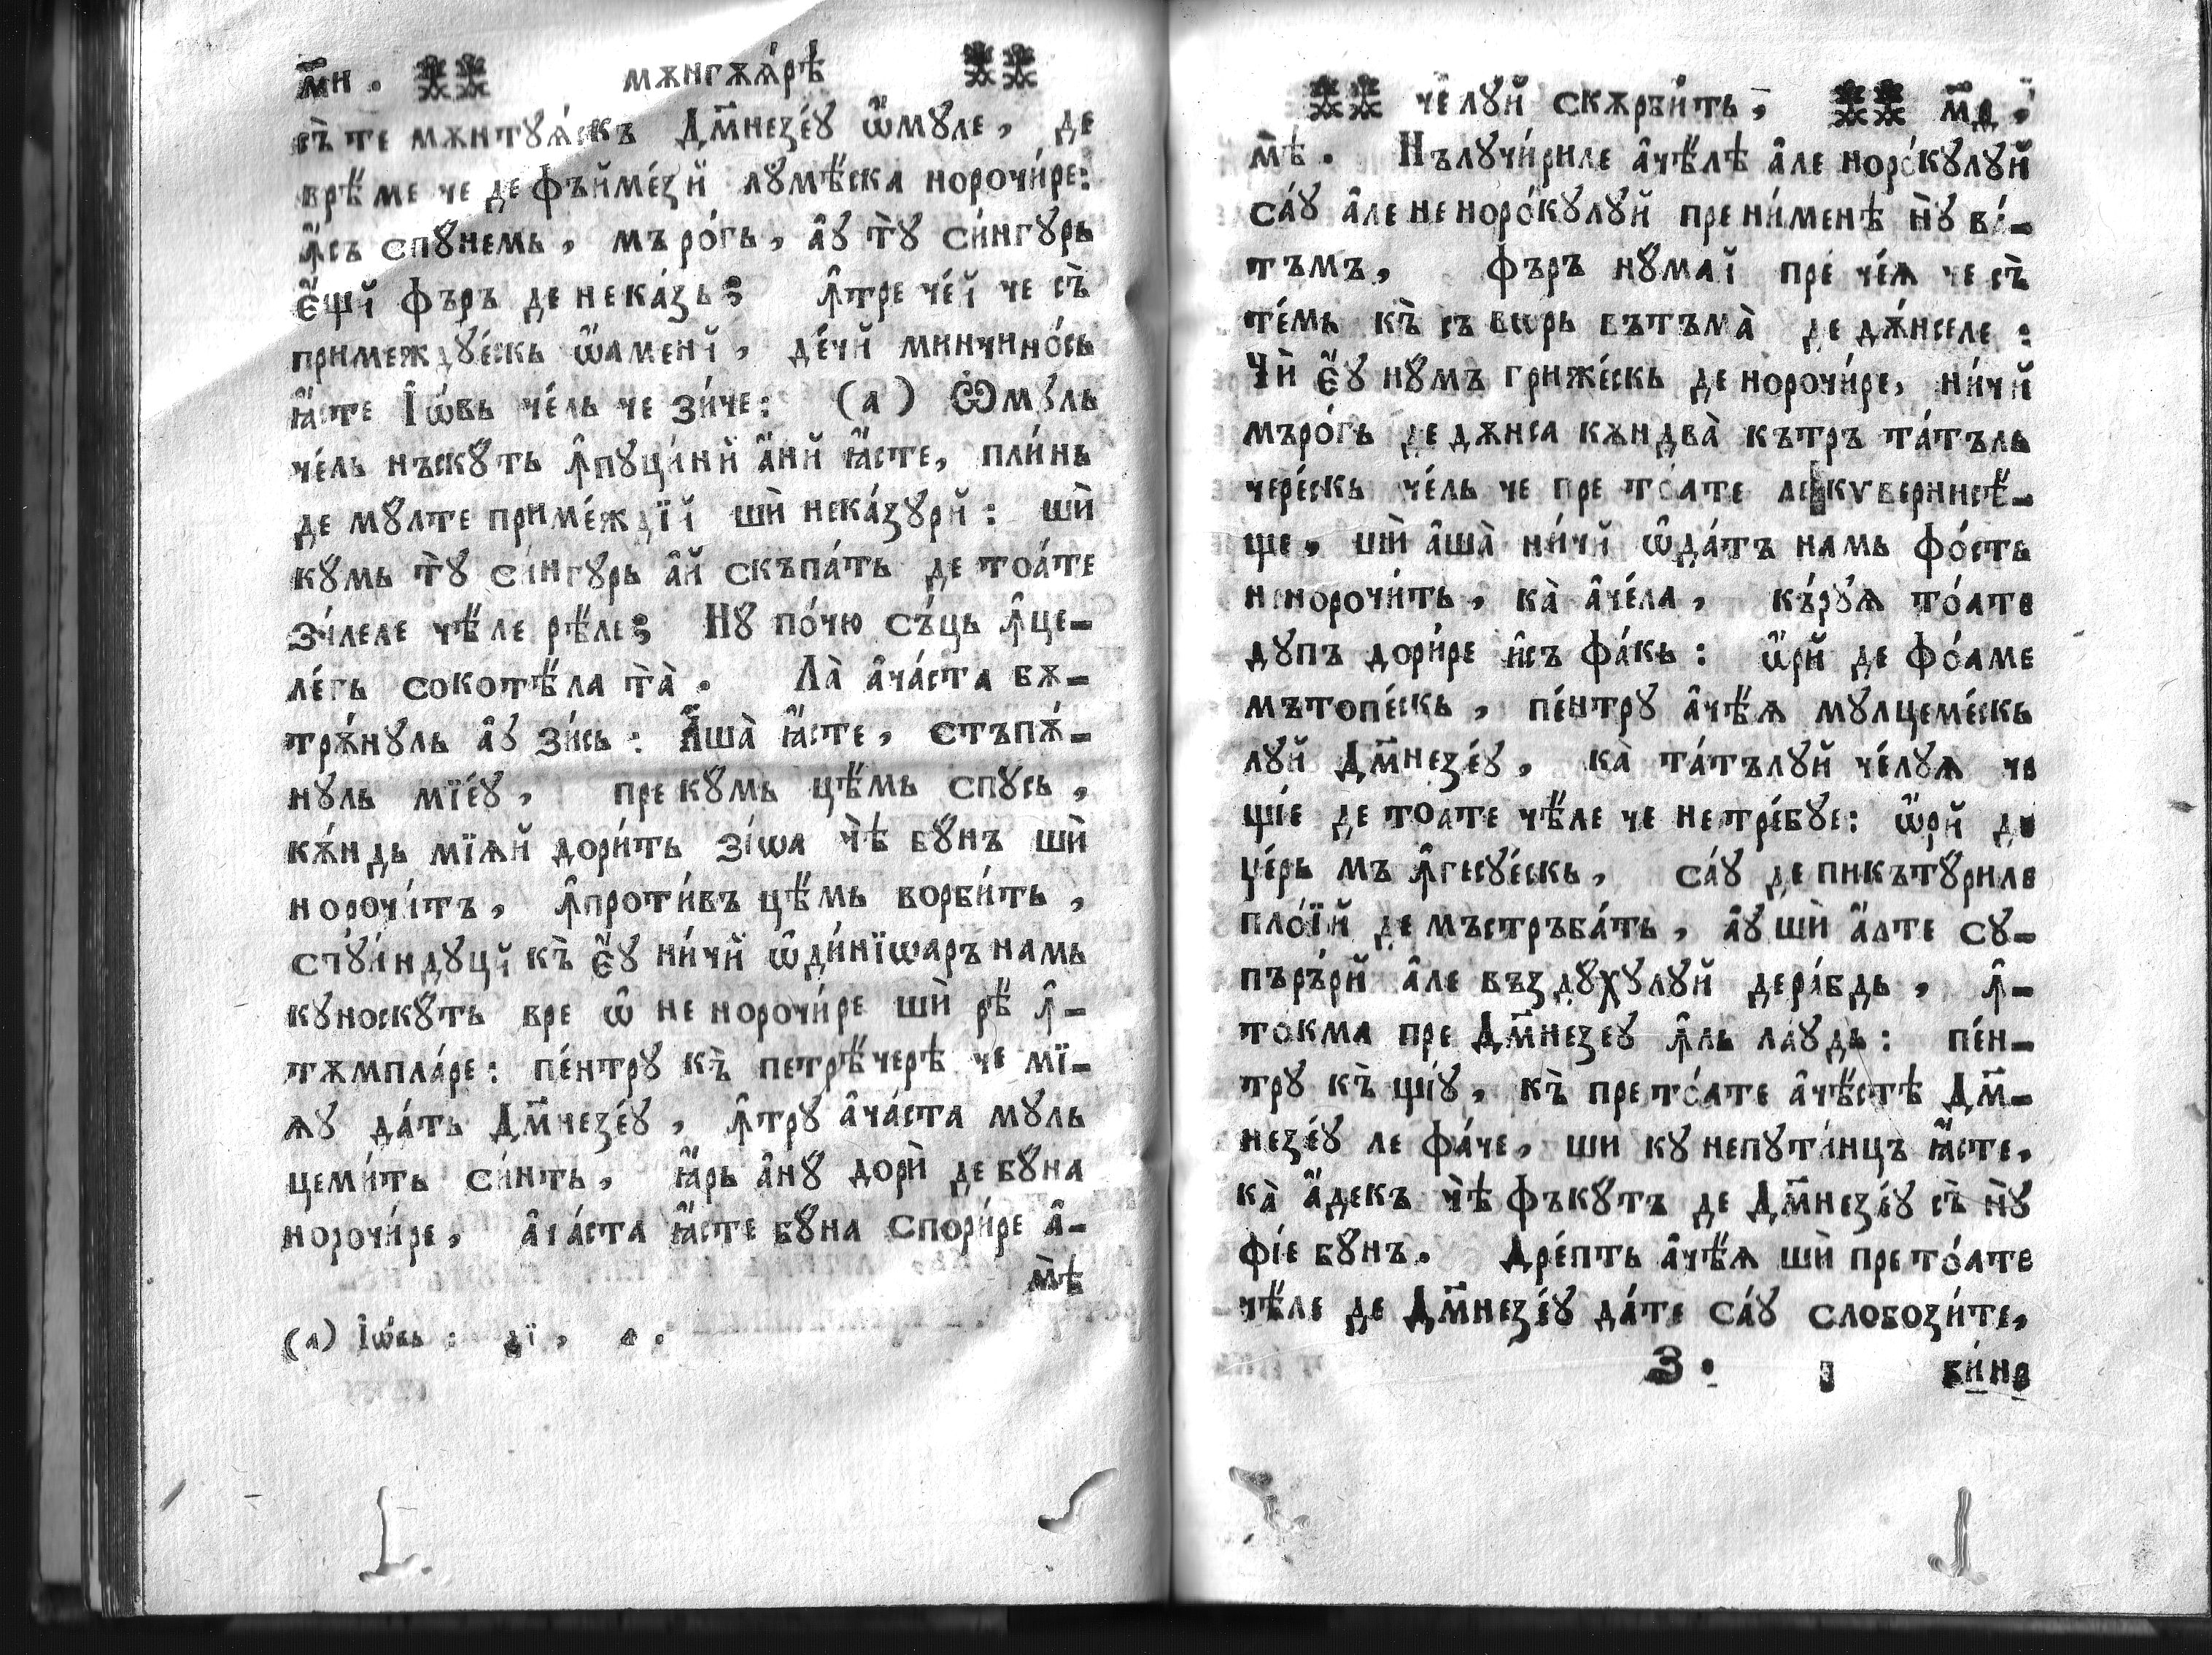 м҃н. мѫнгѫꙗ́рѣ
съ̀ те мѫнтуѧ́скъ Дм҃незе́ꙋ ѡ҆́мꙋле, де
врѣ́ме че де фъйме́зй лꙋмѣ́ска норочи́ре:
ꙟ҆съ спꙋ́немь, мъ ро́гь, а҆ꙋ тꙋ̀ си́нгꙋрь
є҆́щй фъръ де нека́зь; ꙟ҆тре че́й че съ̀
примеждꙋе́скь ѡ҆́аменй, де́чй минчино́сь
ꙗ҆́сте І҆ѡ́вь че́ль че зи́че: (а) Ѡ҆мꙋ́ль
че́ль нъскꙋ́ть ꙟ҆пꙋци́нй а҆́ни ꙗ҆́сте, пли́нь
де мꙋ́лте приме́ждїй шѝ нека́зꙋрй: шѝ
кꙋмь тꙋ̀ си́нгꙋрь а҆й скъпа́ть де тоа́те
зи́леле чѣ́ле рѣ́ле; Нꙋ по́чю съ́ць ꙟ҆це-
ле́гь сокотѣ́ла та̀. Ла̀ а҆ча́ста бѫ-
трѫ́нꙋль а҆ꙋ зи́сь: А҆ша̀ ꙗ҆́сте, стъпѫ́-
нꙋль мїе́ꙋ, прекꙋ́мь цѣ́мь спꙋ́сь,
кѫ́ндь мїѧй дори́ть зі́ѡа чѣ̀ бꙋ́нъ шѝ
норочи́тъ, ꙟ҆проти́въ цѣ́мь ворби́ть,
сті́инд꙼ꙋцй къ̀ є҆́ꙋ ни́чй ѡ҆ди́нїѡаръ намь
кꙋноскꙋ́ть вре ѡ҆ не норочи́ре шѝ рѣ̀ ꙟ҆-
тѫмпла́ре: пе́нтрꙋ къ̀ петрѣ́черѣ че мї-
ѧꙋ да́ть Дм҃незе́ꙋ, ꙟ҆трꙋ а҆ча́ста мꙋль
цеми́ть си́нть, ꙗ҆́рь а҆нꙋ̀ дорѝ де бꙋ́на
норочи́ре, а҆ча́ста ꙗ҆́сте бꙋ́на спори́ре а҆-
мѣ̀
(а) І҆ѡ́вь: д҃ї,
че́лꙋй скѫрви́ть, м҃д,
мѣ̀. Нълꙋчи́риле а҆чѣ́лѣ а҆ле норо́кꙋлꙋй
са́ꙋ а҆ле неноро́кꙋлꙋй прени́менѣ нꙋ̀ ві́-
тъмъ, фъръ нꙋ́май пре че́ѧ че съ̀
те́мь къ̀ съ ворь вътъма̀ де дѫ́нселе:
Чѝ є҆́ꙋ нꙋ́мъ грижескь де норочи́ре, ни́чй
мъро́гь де дѫнса кѫндва̀ кътръ та́тъль
чере́скь че́ль че пре то́ате ле кѵвернисѣ́-
ще, шѝ а҆ша̀ ни́чй ѡ҆да́тъ намь фо́сть
ненорочи́ть, ка̀ а҆че́ла, къ́рꙋѧ то́ате
дꙋпъ дори́ре и҆съ фа́кь: ѡ҆́рй де фо́аме
мътопе́скь, пе́нтрꙋ а҆чѣ́ѧ мꙋлцеме́скь
лꙋй Дм҃незе́ꙋ, ка̀ та́тълꙋй че́лꙋѧ че
щі́е де тоате чѣ́ле че нетре́бꙋе: ѡ҆́рй де
це́рь мъ ꙟ҆гесꙋе́скь, са́ꙋ де пикътꙋ́риле
пло́їй де мъстръба́ть, а҆́ꙋ шѝ а҆́лте сꙋ-
пъръ́рй а҆ле въздꙋ́хꙋлꙋй дера́бдь, ꙟ҆-
токма пре Дм҃незеꙋ ꙟ҆ль ла́ꙋдь: пе́н-
трꙋ къ̀ щі́ꙋ, къ̀ прето́ате а҆чѣ́стѣ Дм҃-
незе́ꙋ ле фа́че, ши кꙋ непꙋти́нцъ ꙗ҆́сте,
ка̀ а҆́декъ чѣ̀ фъкꙋ́тъ де Дм҃незе́ꙋ съ̀ нꙋ̀
фі́е бꙋ́нъ. Дре́пть а҆чѣ́ѧ шѝ пре то́ате
чѣ́ле де Дм҃незе́ꙋ да́те са́ꙋ слобози́те,
З. би́не